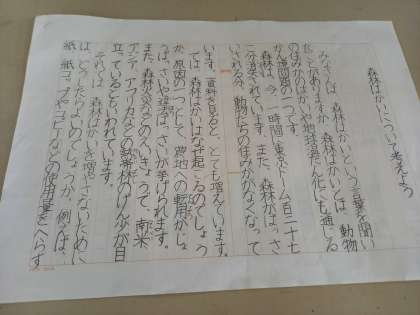 森林はかいについて考えよう
みなさんは、森林はかいという言葉を聞い
たことがありますか。森林はかいとは、動物
の住みかのはかいや地球温だん化にも通じる
かん境問題の一つです。
森林は、今、一時間に東京ドーム百二十七
こ分失われています。また、森林がばっさ
いされる分、動物たちの住みかがなくなって
います。資料を見ると、とても増えています。
では、森林はかいはなぜ起こるのでしょう
か。原因の一つとして、農地への転用がじょ
うはっさいや違法ばっさいが挙げられます。
また、森林火災などのえいきょうで、南米
アジア、アフリカなどの熱帯林のげん少が目
立っているといわれています。
それでは、森林はかいを増やさないために
は、どうしたらよいのでしょうか。例えば、
紙、紙コップやコピーなどの使用量をへらす